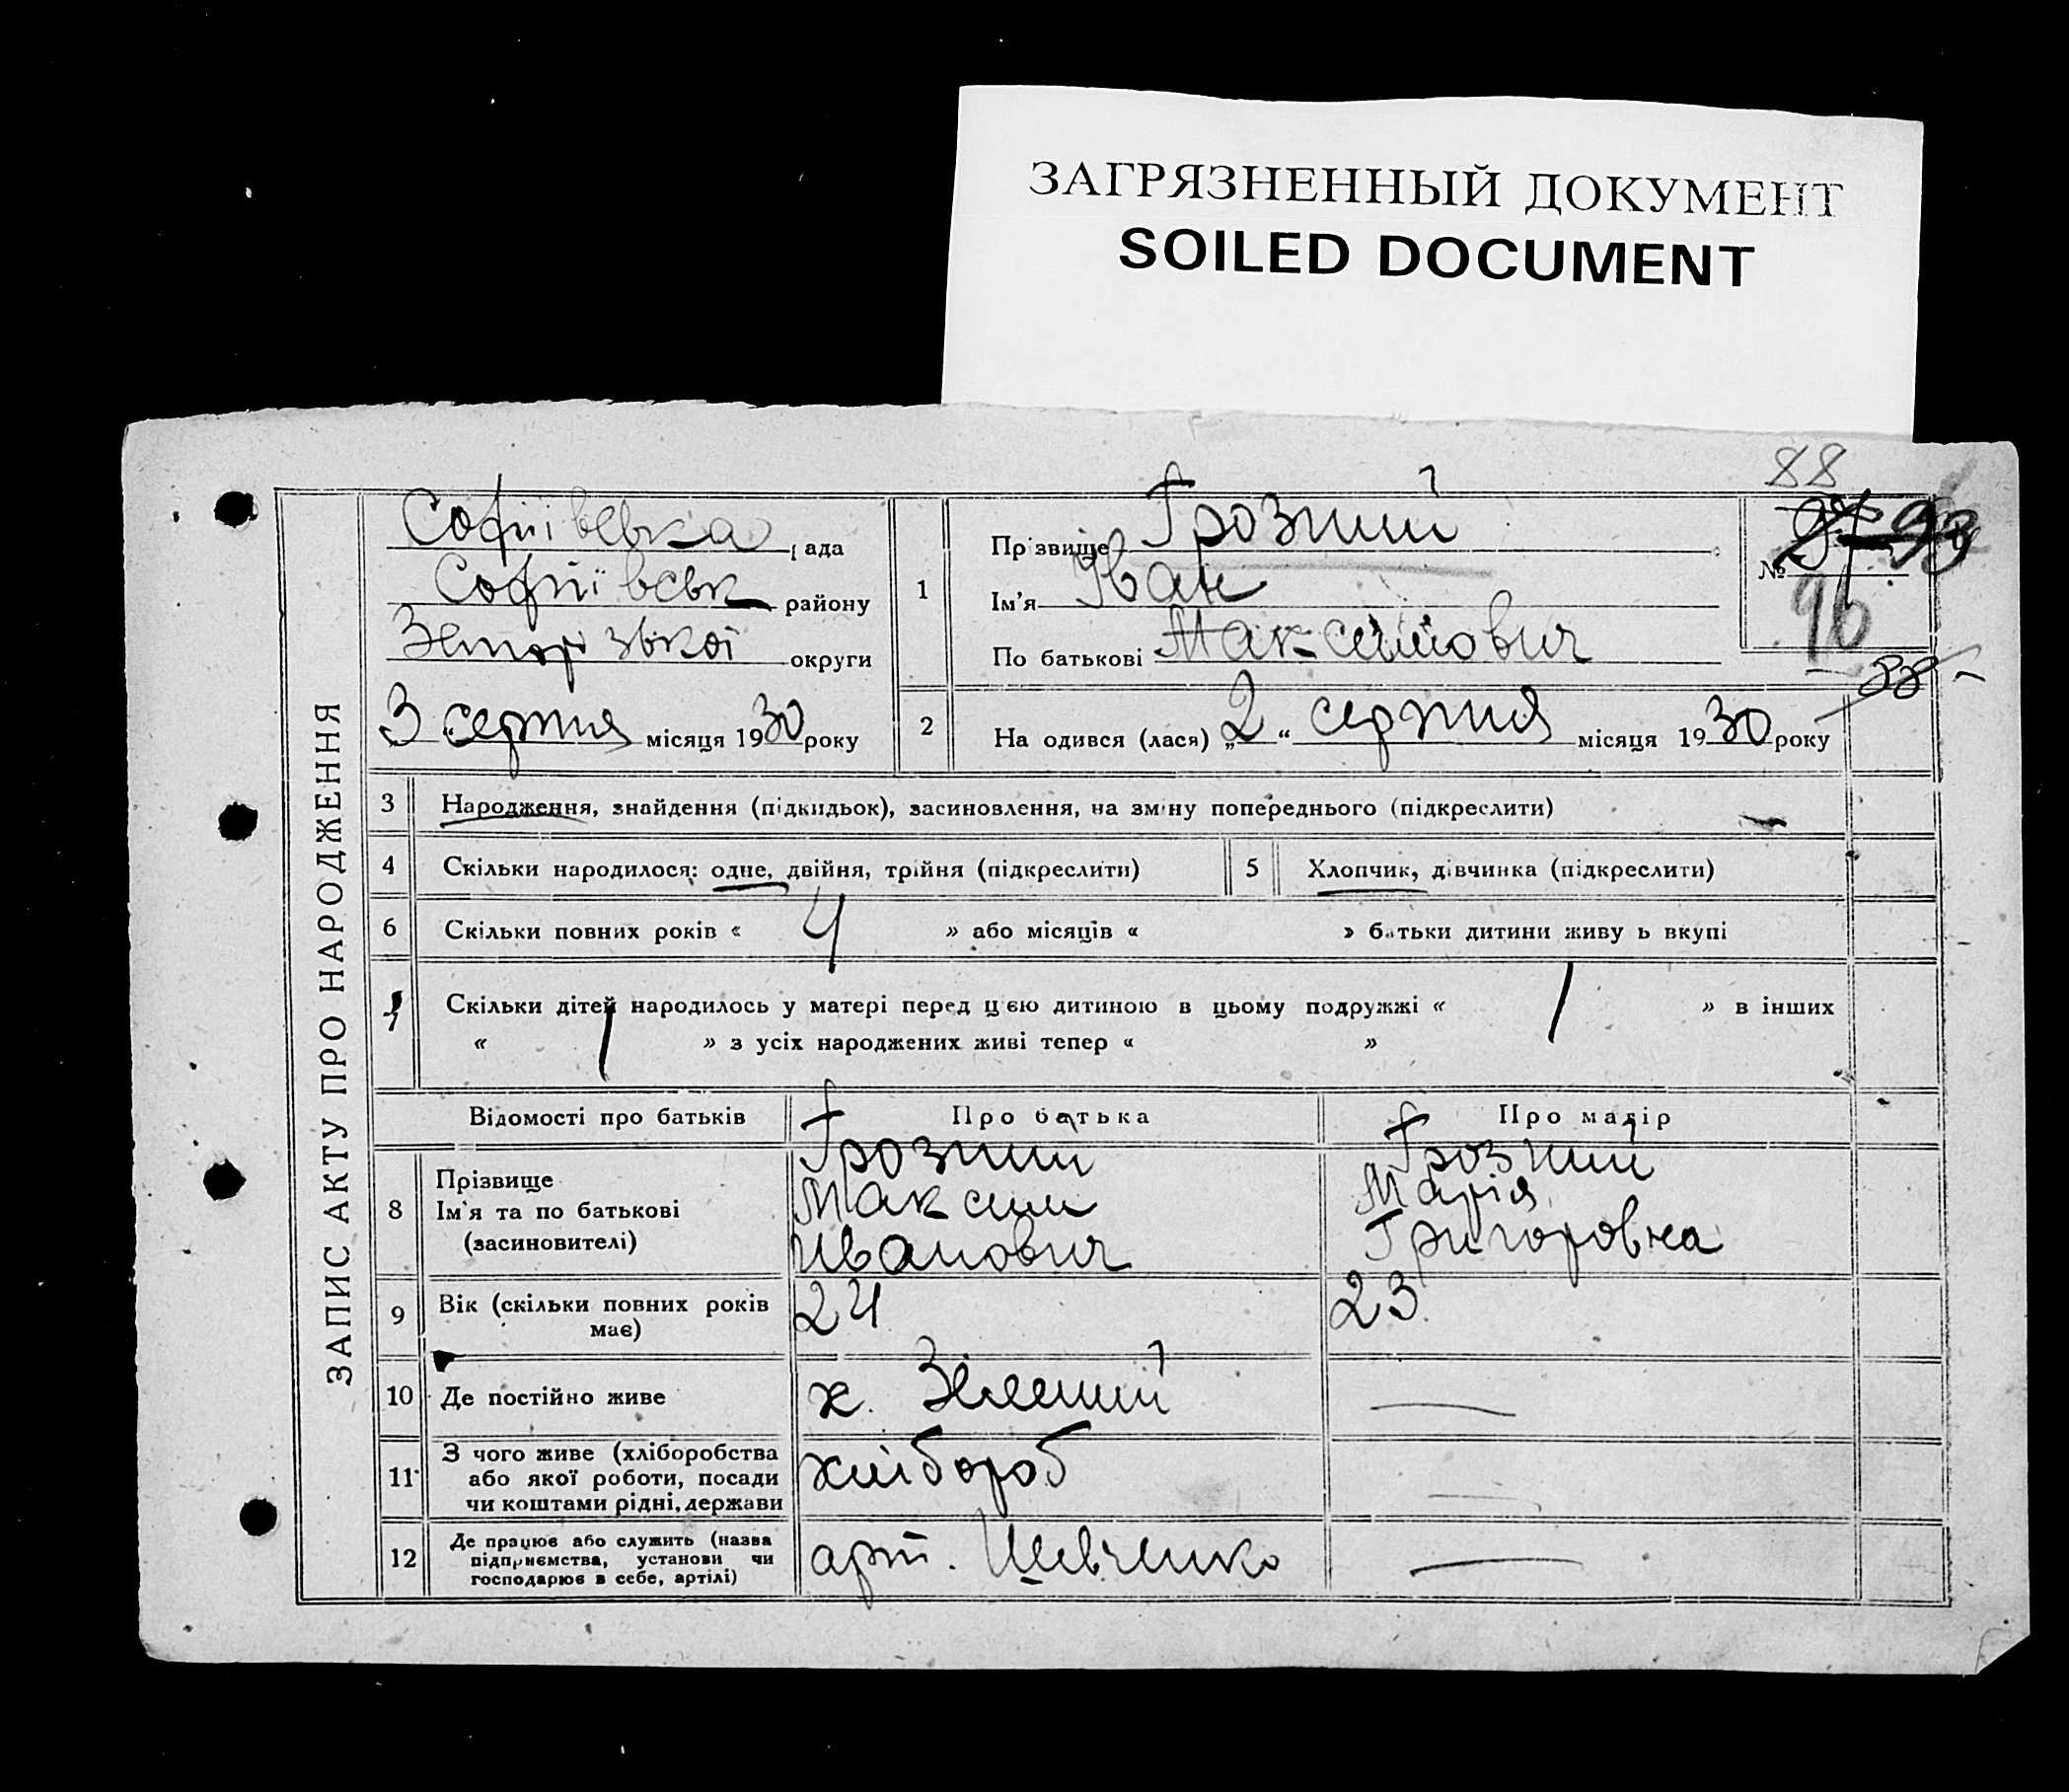 ЗАГРЯЗНЕННЫЙ ДОКУМЕНТ
SOILED DOCUMENT
88
ЗАПИС АКТУ ПРО НАРОДЖЕННЯ
Софиівська рада
Софиївськ району
округи
3 серпня місяця 1930 року
1
Прізвище Грозний
Ім'я Іван
По батькові Максимович
№ 93
96
88
2
На одився (лася) „2“ серпня місяця 1930 року
3 Народження, знайдення (підкидьок), засиновлення, на зміну попереднього (підкреслити)
4 Скільки народилося: одне, двійня, трійня (підкреслити)
5 Хлопчик, дівчинка (підкреслити)
6 Скільки повних років « 4 » або місяців « » батьки дитини живу ь вкупі
7 Скільки дітей народилось у матері перед цією дитиною в цьому подружжі « 1 » в інших
« 1 » з усіх народжених живі тепер « »
Відомості про батьків Про батька Про матір
8 Прізвище Грозний Грозний
Ім'я та по батькові Максим Марія
(засиновителі) Иванович Григоровна
9 Вік (скільки повних років має) 24 23
10 Де постійно живе х. Зелений —
11 З чого живе (хліборобства хлібороб —
або якої роботи, посади
чи коштами рідні, держави
12 Де працює або служить (назва арт. Шевченко —
підприємства, установи чи
господарює в себе, артілі)